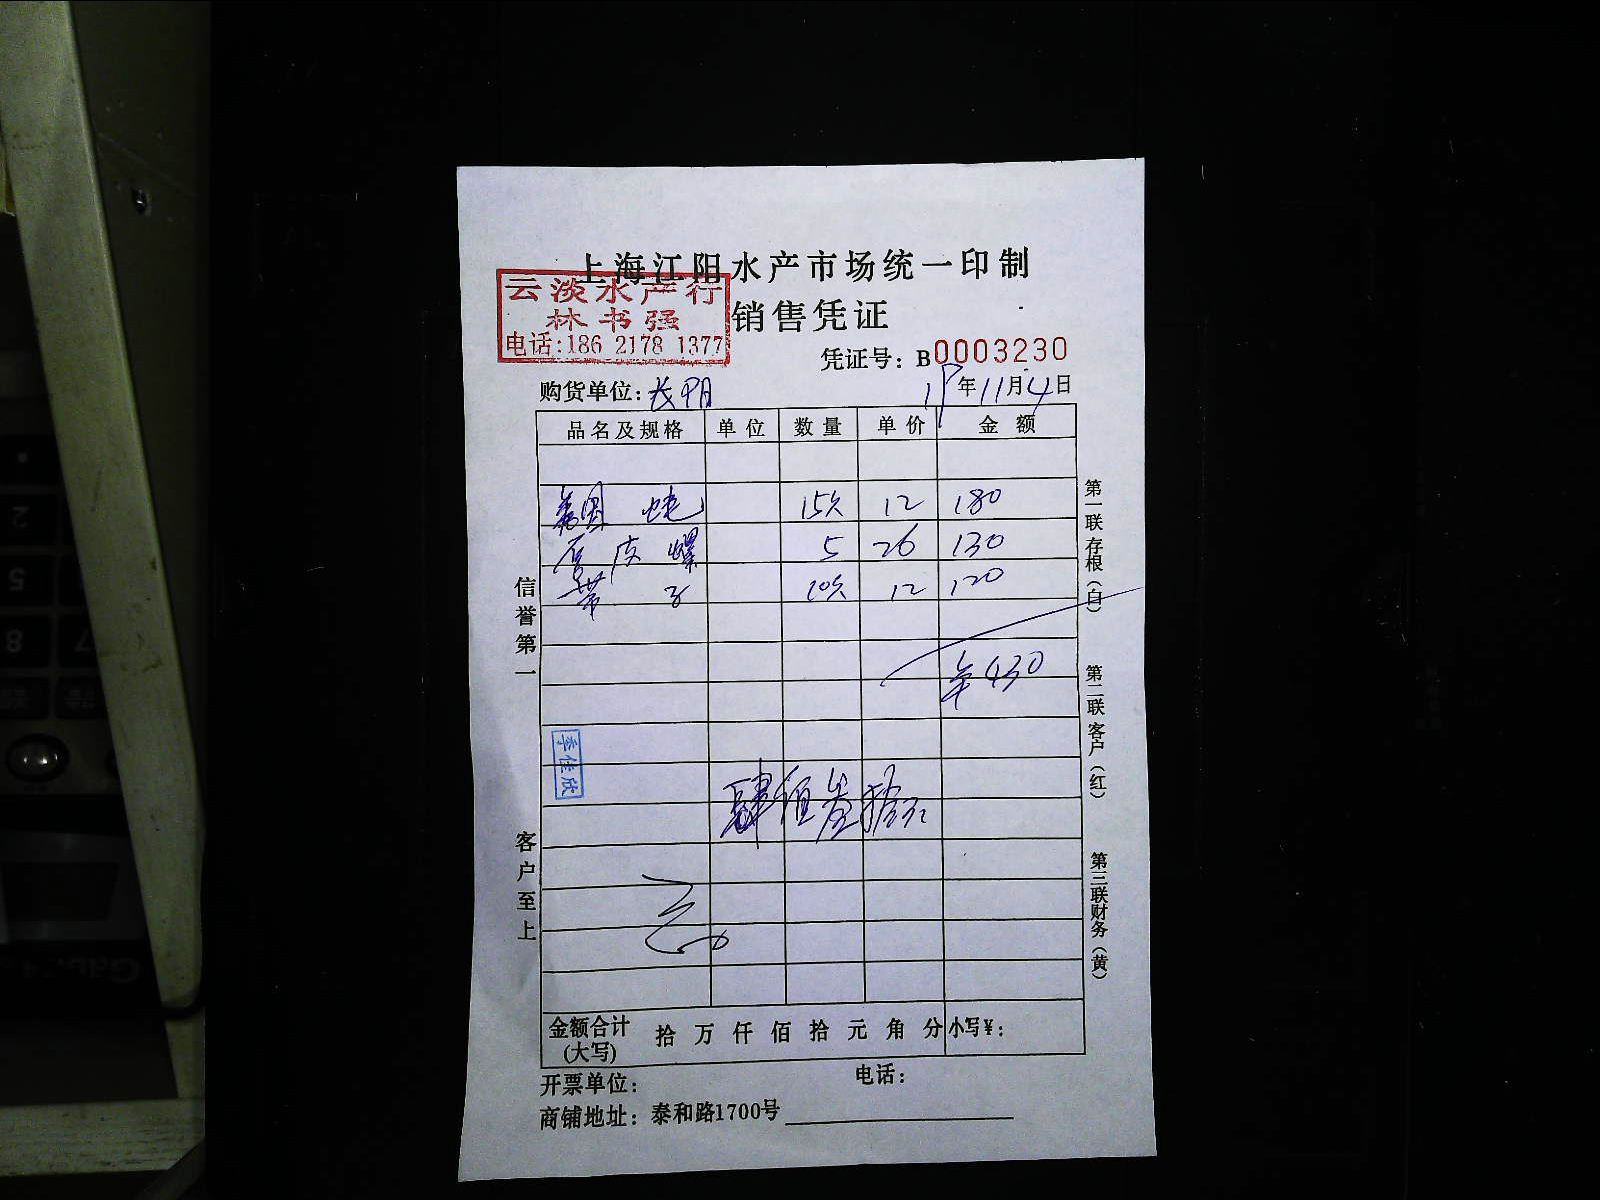 上海江阳水产市场统一印制
云淡水产行
林书强
电话:186 2178 1377
销售凭证
凭证号: B0003230
购货单位: 长阳 年11月4日
品名及规格 单位 数量 单价 金额
12 180
皮螺 5 26 130
带子 12 120
¥430
季佳欣
肆佰叁拾元
金额合计(大写) 拾 万 仟 佰 拾 元 角 分 小写¥:
开票单位: 电话:
商铺地址: 泰和路1700号
信誉第一
客户至上
第一联存根(白)
第二联客户(红)
第三联财务(黄)